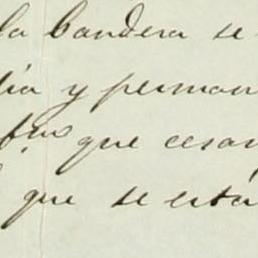 la bandera se
día y perman
que cesan
que se está